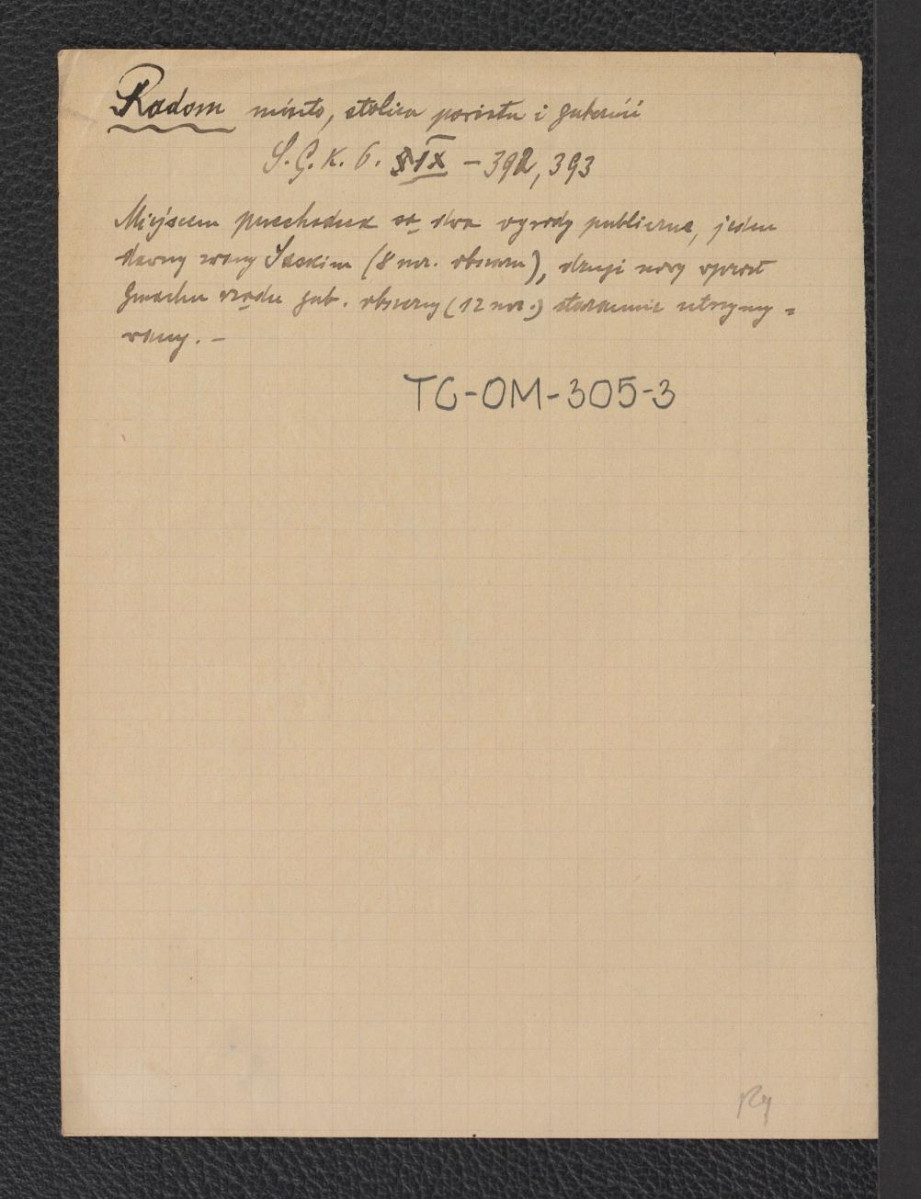 Radom miasto, stolica powiatu i gubernii
S. G. K. P. IX – 392, 393
Miejscem przechadzek są dwa ogrody publiczne, jeden
dawny zwany Saskim (8 mr. obszaru), drugi nowy wprost
gmachu rządu gub. obszerny (12 mr.) starannie utrzymy=
wany. –
TC-OM-305-3